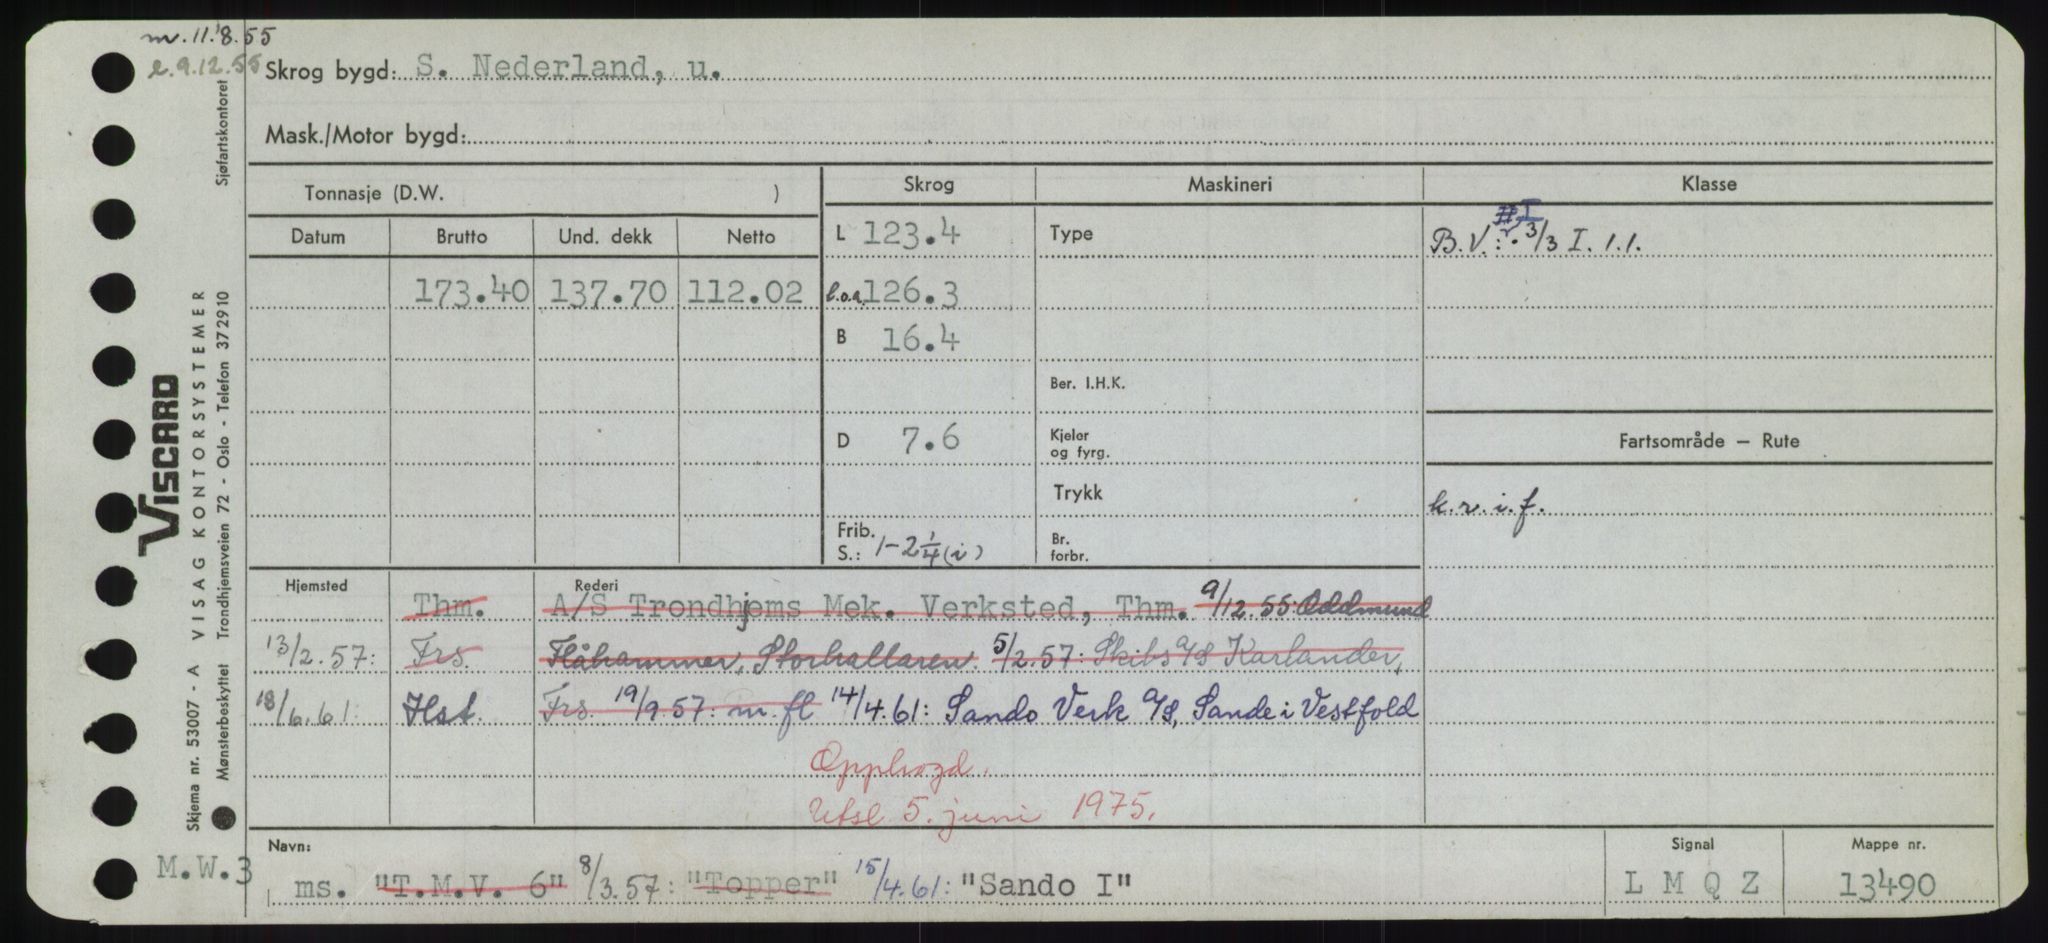 m. 11.8.55
e. 9.12.55
Skrog bygd: S. Nederland, u.
Mask./Motor bygd:
Tonnasje (D.W. )
Skrog
Maskineri
Klasse
Datum
Brutto
Und. dekk
Netto
L 123.4
Type
B.V.: 3/3 I. 1.1.
173.40 137.70 112.02
l.o.a. 126.3
B 16.4
Ber. I.H.K.
D 7.6
Kjeler
og fyrg.
Fartsområde — Rute
Trykk
k.v.i.f.
Frib.
S.: 1-2 1/4 (i)
Br.
forbr.
Hjemsted
Rederi
Thm. A/S Trondhjems Mek. Verksted, Thm. 9/12.55: Oddmund
13/2.57: Frs. Flåhammer, Storhallaren. 5/2.57: Skibs A/S Karlander,
18/6.61: Hst. Frs. 19/9.57: m. fl 14/4.61: Sando Verk A/S, Sande i Vestfold
Opphogd.
Utsl. 5. juni 1975.
Navn:
Signal
Mappe nr.
M.W.3
ms. "T.M.V. 6" 8/3.57: "Topper" 15/4.61: "Sando I"
L M Q Z
13490
VISCARD
Skjema nr. 53007 - A VISAG KONTORSYSTEMER
Mønsterbeskyttet Trondhjemsveien 72 - Oslo - Telefon 372910 Sjøfartskontoret